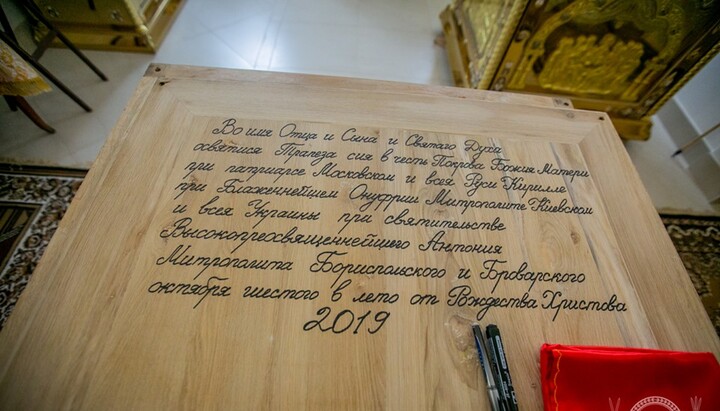 Во имя Отца и Сына и Святаго Духа
освятися Трапеза сия в честь Покрова Божия Матери
при патриархе Московском и всея Руси Кирилле
при Блаженнейшем Онуфрии Митрополите Киевском
и всея Украины при святительстве
Высокопреосвященнейшего Антония
Митрополита Бориспольского и Броварского
октября шестого в лето от Рождества Христова
2019